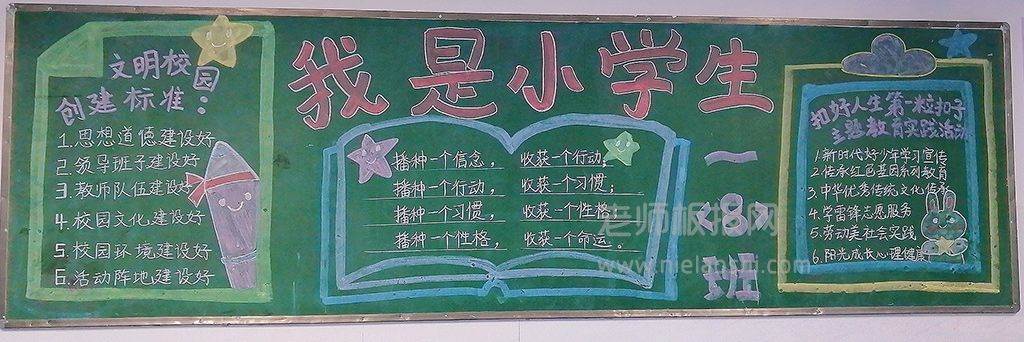 我是小学生
文明校园
创建标准：
1.思想道德建设好
2.领导班子建设好
3.教师队伍建设好
4.校园文化建设好
5.校园环境建设好
6.活动阵地建设好
播种一个信念， 收获一个行动；
播种一个行动， 收获一个习惯；
播种一个习惯， 收获一个性格；
播种一个性格， 收获一个命运。
一
<8>
班
扣好人生第一粒扣子
主题教育实践活动
1.新时代好少年学习宣传
2.传承红色基因系列教育
3.中华优秀传统文化传承
4.学雷锋志愿服务
5.劳动美社会实践
6.阳光成长心理健康
老师板报网